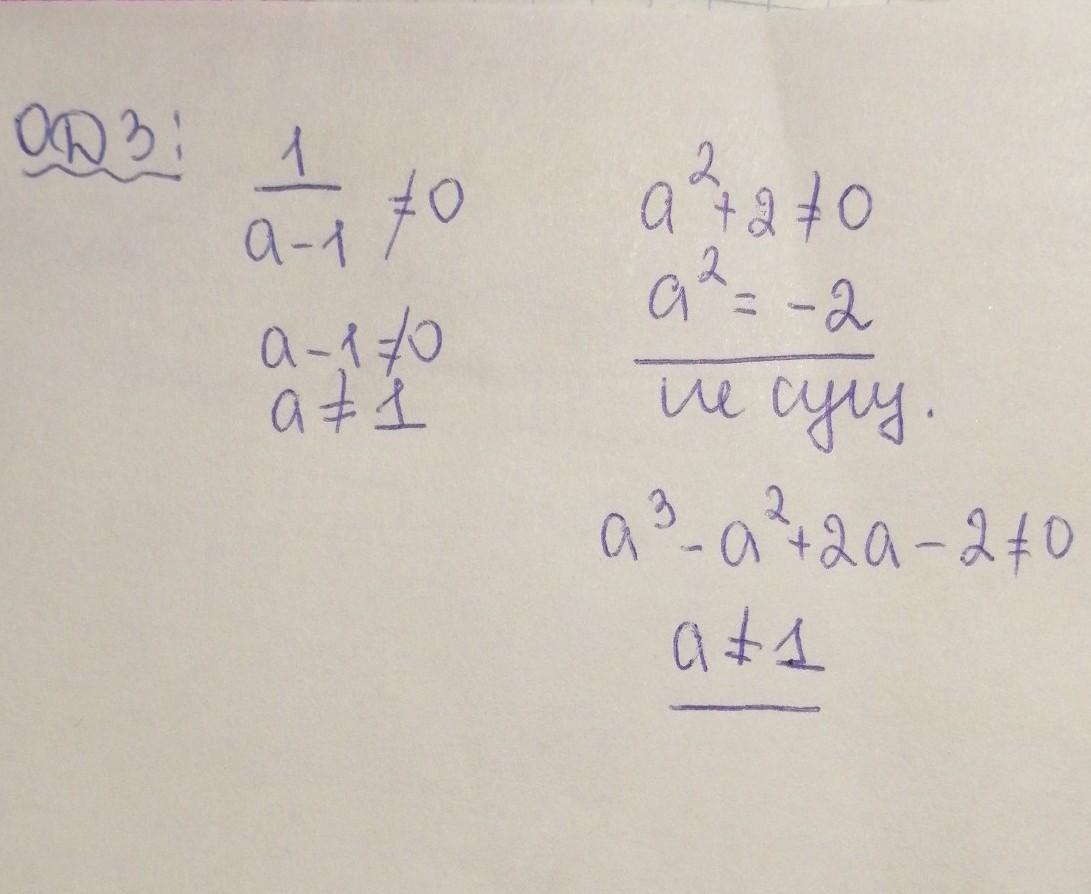 ОДЗ:
1/(a-1) ≠0
a-1≠0
a≠1
a²+2≠0
a²=-2
не сущ.
a³-a²+2a-2≠0
a≠1